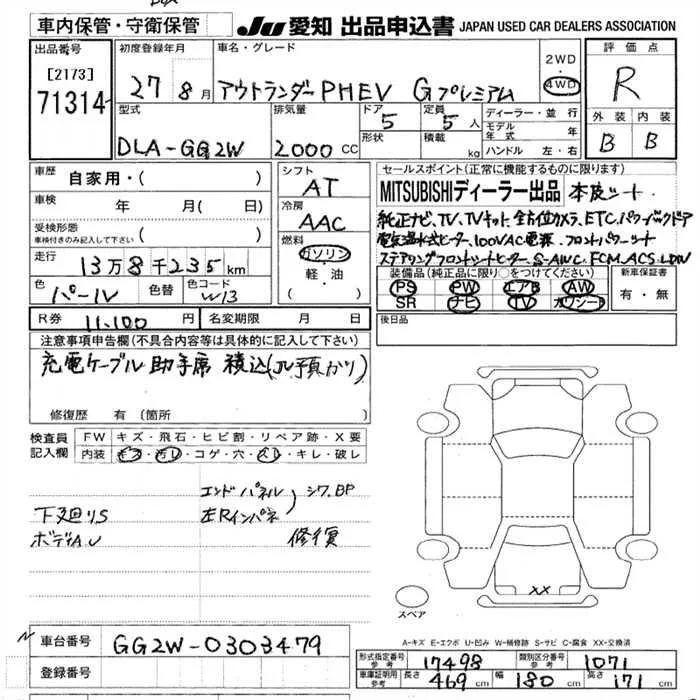 車内保管・守衛保管
JU 愛知 出品申込書 JAPAN USED CAR DEALERS ASSOCIATION
出品番号
[2173]
71314
初度登録年月
27 8月
車名・グレード
アウトランダーPHEV Gプレミアム
2WD
4WD
評価点
R
外装 内装
B B
型式
DLA-GG2W
排気量
2000 CC
ドア
5
形状
定員
5人
積載
kg
ディーラー・並行
モデル年式 年
ハンドル 左・右
車歴
自家用・( )
車検 年 月( 日)
受検形態
車検付きのみ記入して下さい ( )
走行
13万8千235km
色
パール
色替
色コード
W13
シフト
AT
冷房
AAC
燃料
ガソリン
軽・油
( )
セールスポイント(正常に機能するものに限ります)
MITSUBISHIディーラー出品 本皮シート
純正ナビ、TV、TVキット、全方位カメラ、ETC、パワーバックドア
電気温水式ヒーター、100VAC電源、フロントパワーシート
ステアリングフロントシートヒーター、S-AWC、FCM、ACS、LDW
装備品(純正品に限り○をつけてください)
PS PW エアB AW
SR ナビ TV カワシート
新車保証書
有・無
R券 11,100 円
名変期限 月 日
後日品
注意事項申告欄(不具合内容等は具体的に記入して下さい)
充電ケーブル 助手席 積込(JU預かり)
修復歴 有(箇所 )
検査員記入欄
FW キズ・飛石・ヒビ割・リペア跡・X要
内装 キズ・汚レ・コゲ・穴・スレ・キレ・破レ
エンドパネル
左Rインパネ
シワ、BP
修復
下廻りS
ボディA.U
XX
スペア
A-キズ E-エクボ U-凹み W-補修跡 S-サビ C-腐食 XX-交換済
車台番号
GG2W-0303479
登録番号
形式指定番号 参考 17498
類別区分番号 参考 1071
車庫証明用 参考 長さ 469 cm 幅 180 cm 高さ 171 cm